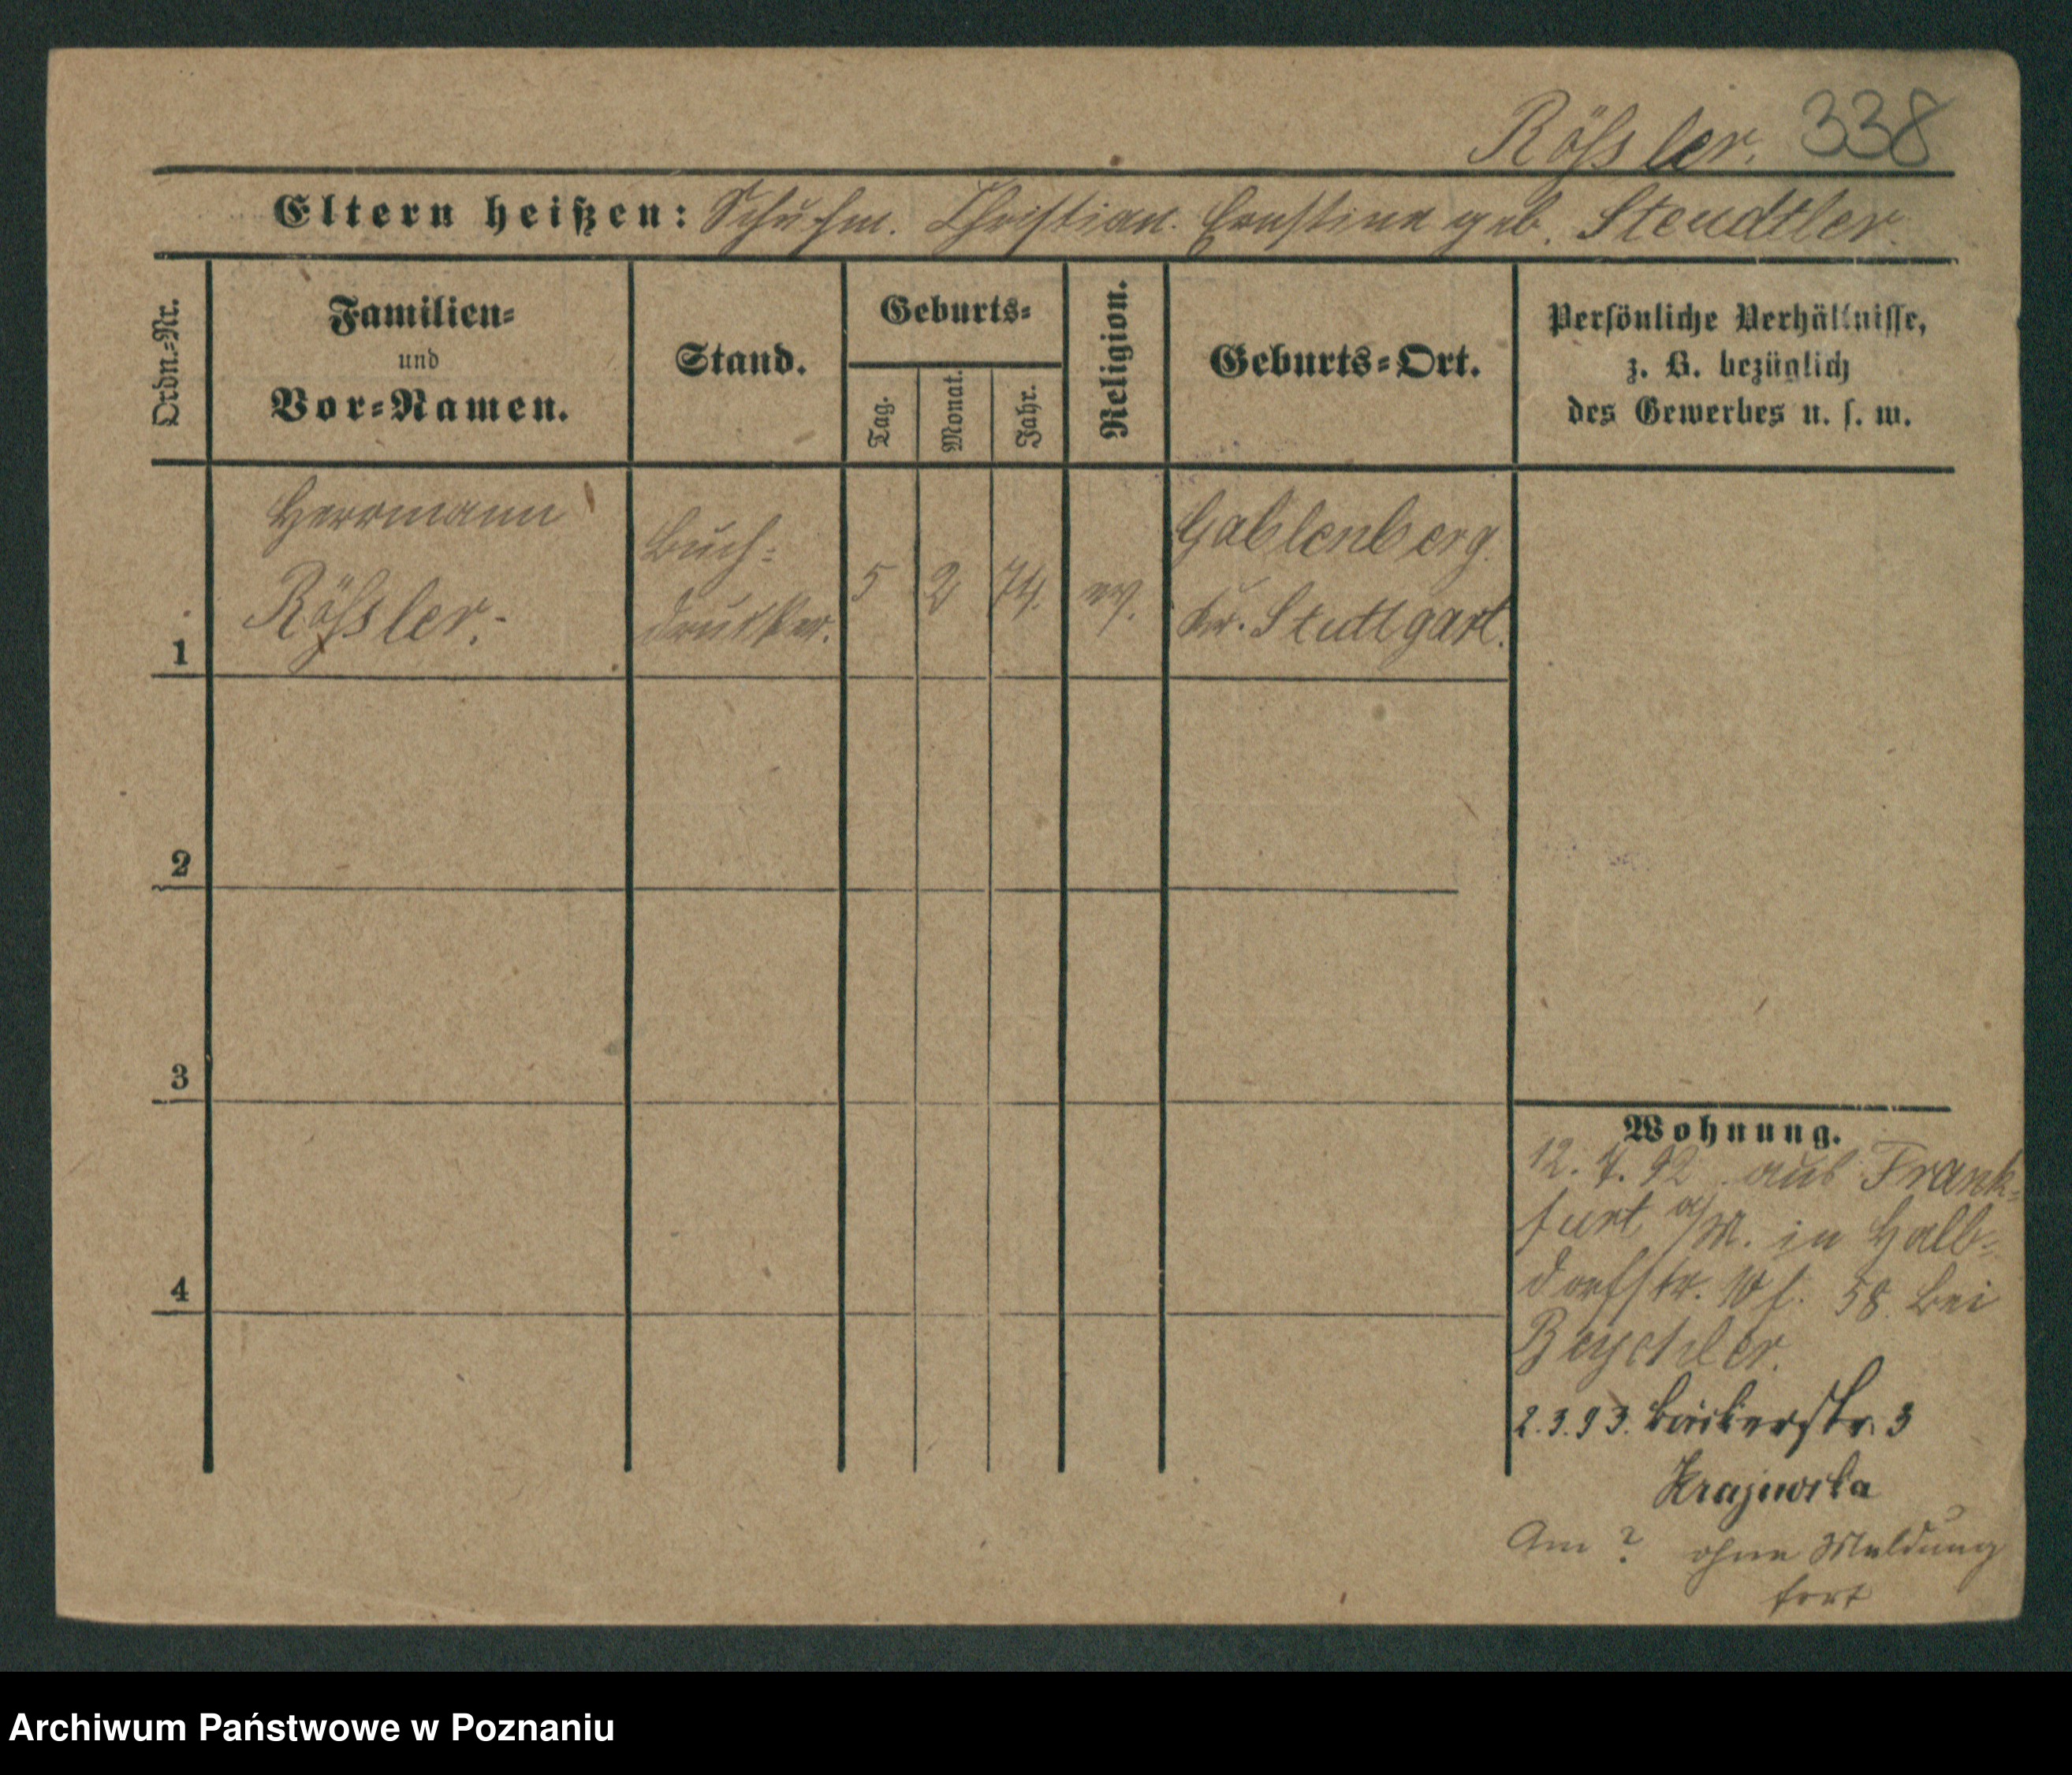 Rößler. 338
Eltern heißen: Schuhm. Christian. Ernstine geb. Steudtler.
Ordn.-Nr.
Familien-
und
Vor-Namen.
Stand.
Geburts-
Tag.
Monat.
Jahr.
Religion.
Geburts-Ort.
Persönliche Verhältnisse,
z. B. bezüglich
des Gewerbes u. s. w.
1
Herrmann
Rößler.-
Buch-
drucker.
5
2
74.
ev.
Gablenberg.
Kr. Stuttgart.
2
3
4
Wohnung.
12. 7. 92. aus Frank-
furt a/M. in Halb-
dorfstr. 58 bei
2.3.93. Bäckerstr. 3
Krajewska
Am ? ohne Meldung
fort
Archiwum Państwowe w Poznaniu